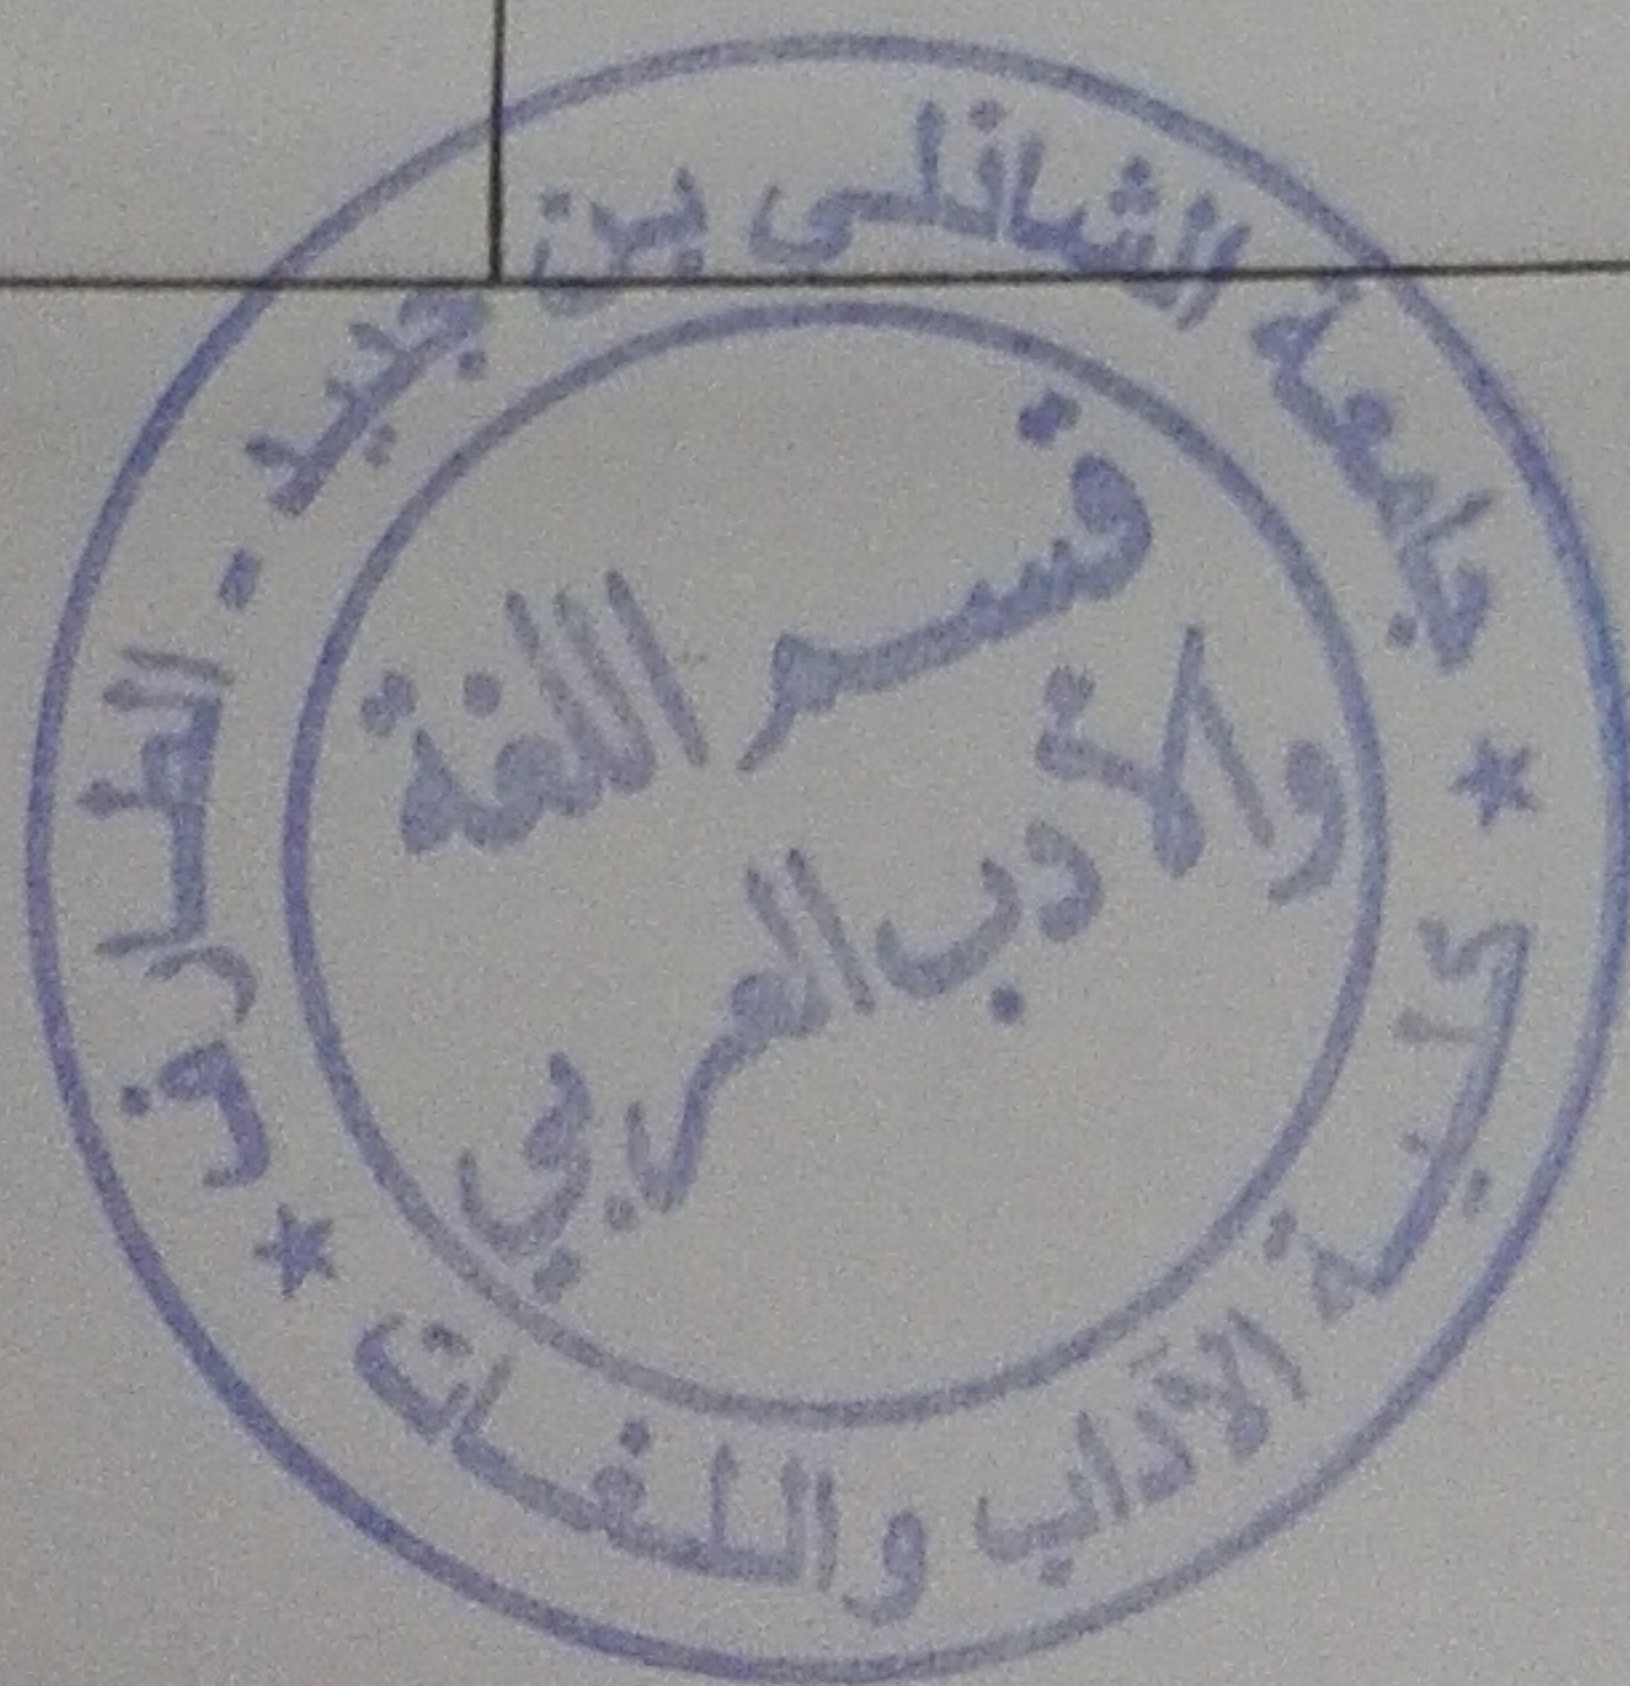 جامعة الشاذلي بن جديد - الطارف
كلية الآداب واللغات
قسم اللغة
والأدب العربي